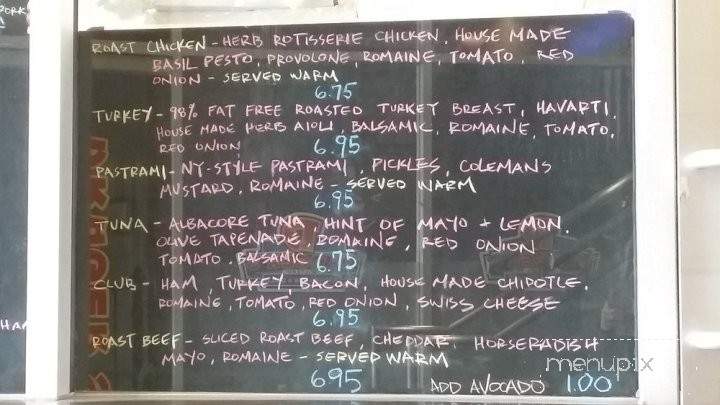 ROAST CHICKEN - HERB ROTISSERIE CHICKEN, HOUSE MADE
BASIL PESTO, PROVOLONE, ROMAINE, TOMATO, RED
ONION - SERVED WARM
6.75
TURKEY - 98% FAT FREE ROASTED TURKEY BREAST, HAVARTI,
HOUSE MADE HERB AIOLI, BALSAMIC, ROMAINE, TOMATO,
RED ONION 6.95
PASTRAMI - NY-STYLE PASTRAMI, PICKLES, COLEMANS
MUSTARD, ROMAINE - SERVED WARM
6.95
TUNA - ALBACORE TUNA, HINT OF MAYO + LEMON,
OLIVE TAPENADE, ROMAINE, RED ONION
TOMATO, BALSAMIC 6.75
CLUB - HAM, TURKEY, BACON, HOUSE MADE CHIPOTLE,
ROMAINE, TOMATO, RED ONION, SWISS CHEESE
6.95
ROAST BEEF - SLICED ROAST BEEF, CHEDDAR, HORSERADISH
MAYO, ROMAINE - SERVED WARM
695 ADD AVOCADO 1.00
menupix